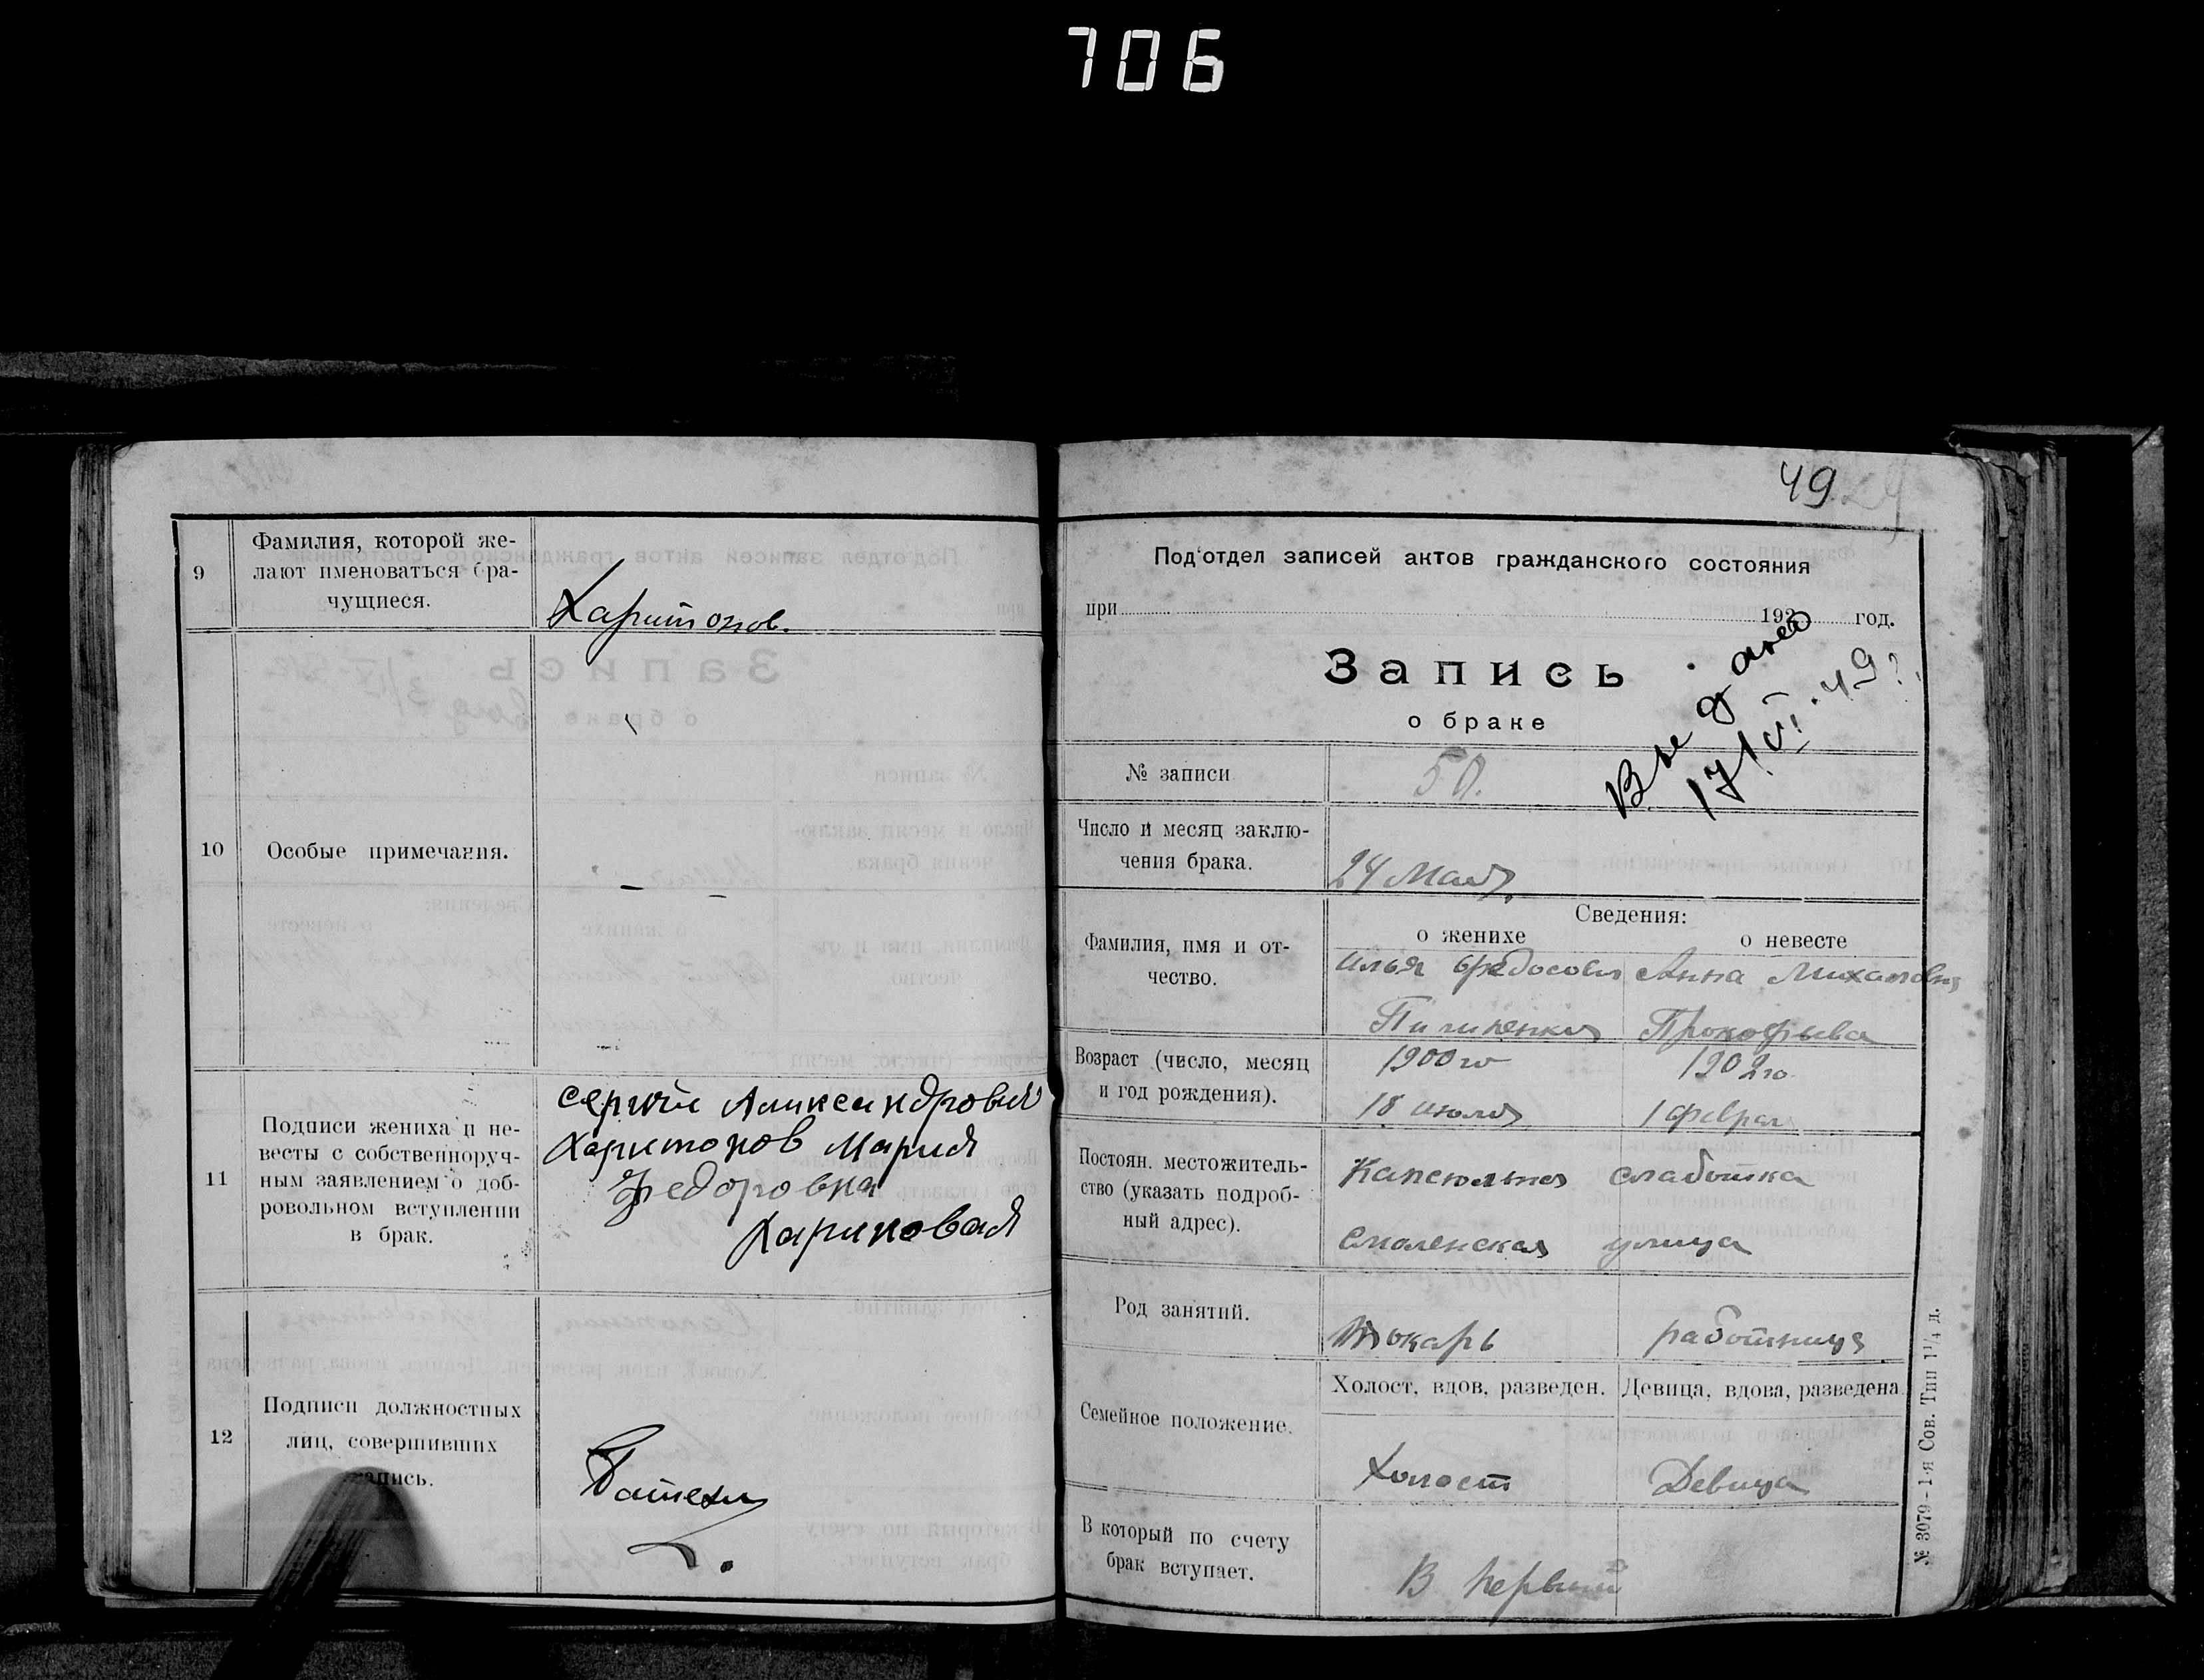 706
9
Фамилия, которой же-
лают именоваться бра-
чущиеся.
Харитонов.
10
Особые примечания.
11
Подписи жениха и не-
весты с собственноруч-
ным заявлением о доб-
ровольном вступлении
в брак.
Харитонов Мария
Федоровна
12
Подписи должностных
лиц, совершивших
запись.
49
Под'отдел записей актов гражданского состояния
при 192 год.
Запись
о браке
Выдано
17/VI. 49 г.
№ записи
50.
Число и месяц заклю-
чения брака.
24 Мая
Сведения:
о женихе
о невесте
Фамилия, имя и от-
чество.
Илья Анна
Прокофьева
Возраст (число, месяц
и год рождения).
1900 го 1902 го
18 1 феврал
Постоян. местожитель-
ство (указать подроб-
ный адрес).
Капсюльная слаботка
Смоленская улица
Род занятий.
Токарь работница
Семейное положение.
Холост, вдов, разведен. Девица, вдова, разведена.
Холост Девица
В который по счету
брак вступает.
В первый
№ 3079 - 1-я Сов. Тип 1 1/4 д.